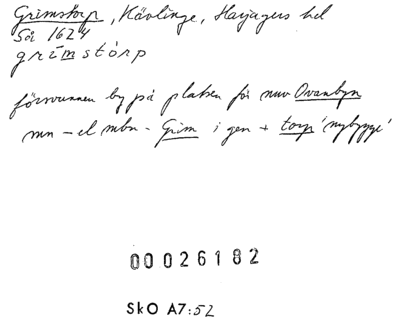 Grimstorp, Kävlinge, Harjagers hd
Så 1624
grimstórp
försvunnen by på platsen för nuv Ovanbyn
mn - el mbn - Grim i gen + torp 'nybygge'
00026182
SkO A7:52